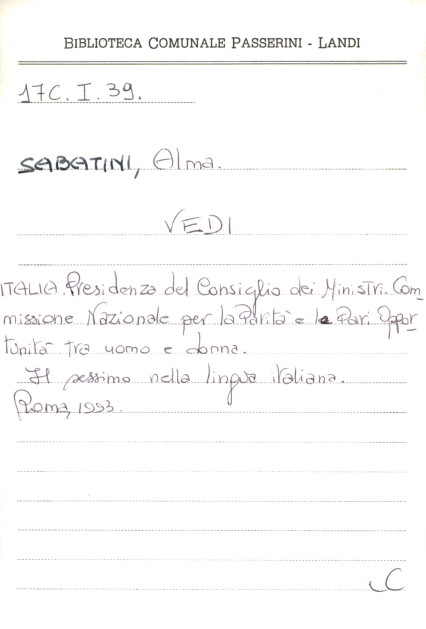 BIBLIOTECA COMUNALE PASSERINI - LANDI
17C. I. 39.
SABATINI, Alma.
VEDI
ITALIA. Presidenza del Consiglio dei Ministri. Com-
missione Nazionale per la Parità e le Pari Oppor-
tunità tra uomo e donna.
Il sessimo nella lingua italiana.
Roma, 1993.
C